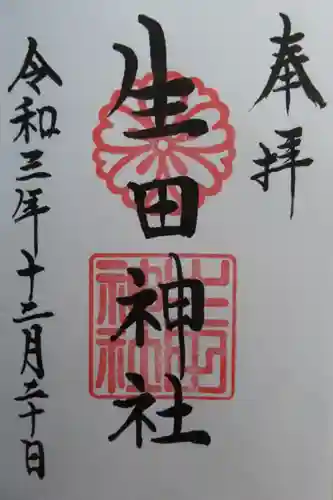 奉拝
生田神社
生田神社
令和三年十二月二十日